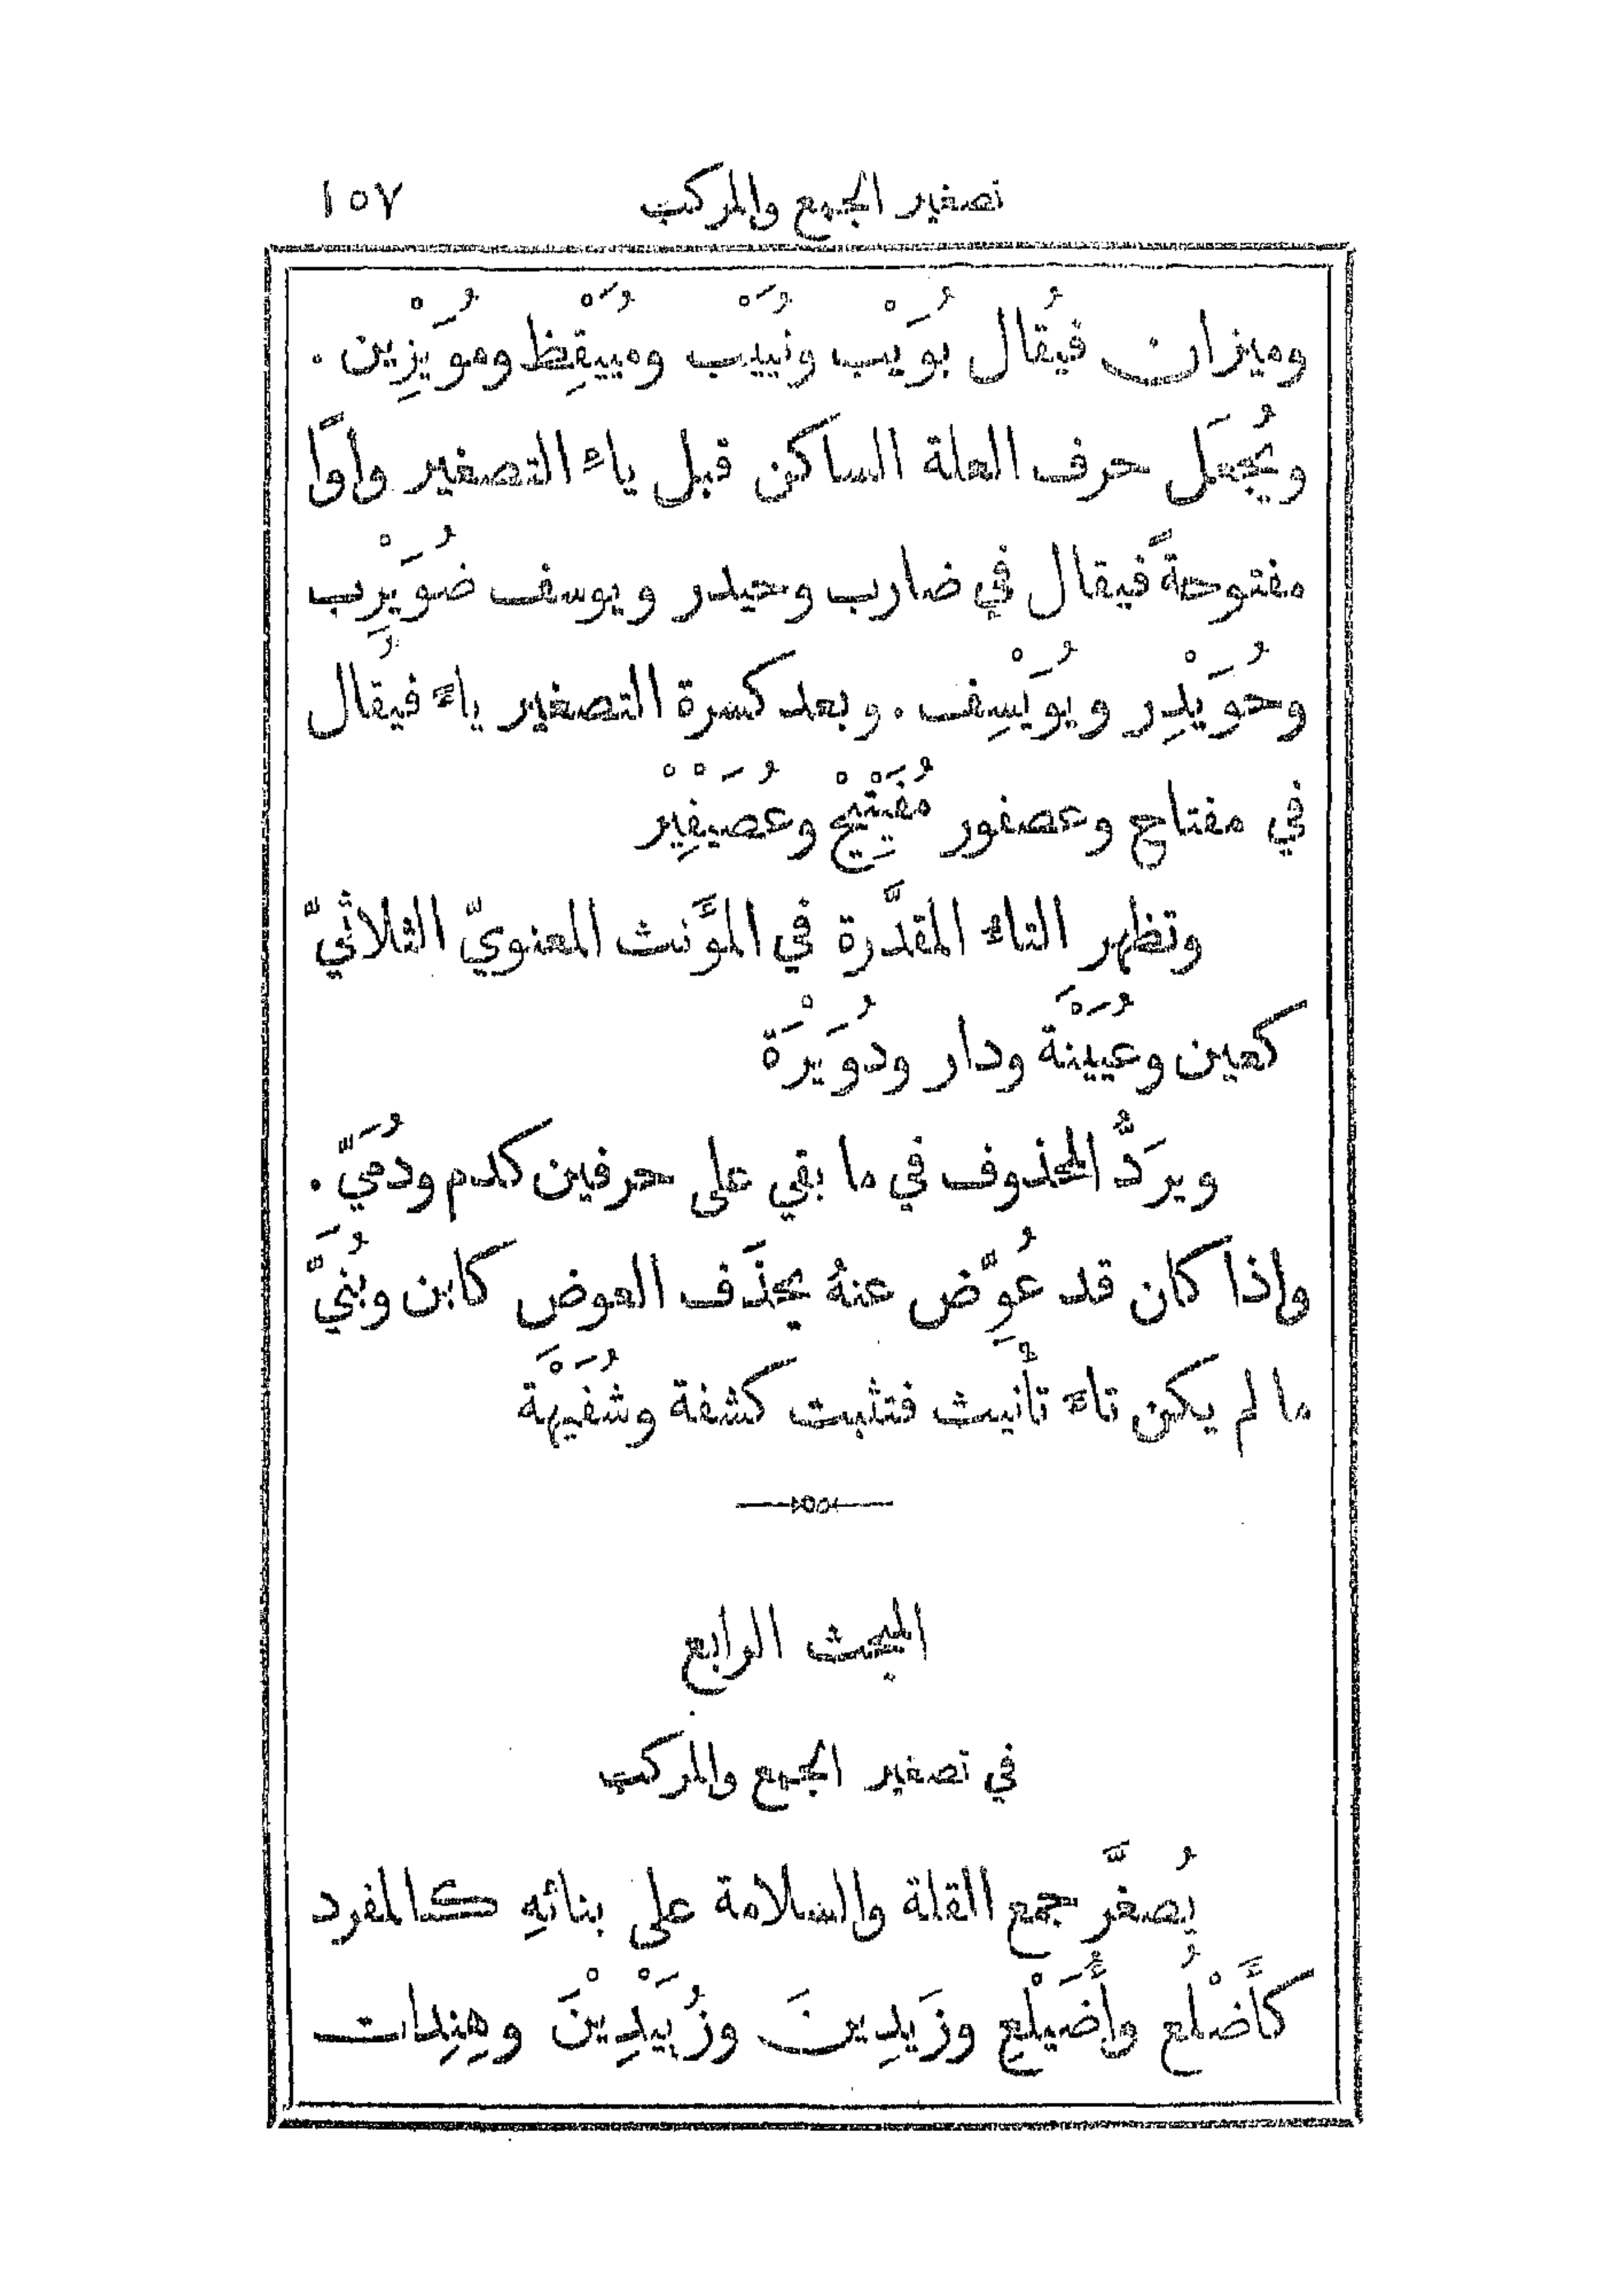 تصغير الجمع والمركب ١٥٧
وميزان فيُقال بُوَيْب ونُيَيْب ومُيَيْقِظ ومُوَيْزِين .
ويُجعَل حرف العلة الساكن قبل ياء التصغير واوًا
مفتوحةً فيقال في ضارب وحيدر ويوسف ضُوَيْرِب
وحُوَيْدِر ويُوَيْسِف . وبعد كسرة التصغير ياءً فيُقال
في مفتاح وعصفور مُفَيْتِيْح وعُصَيْفِيْر
وتظهر التاء المقدَّرة في المؤَنث المعنويّ الثلاثيّ
كعين وعُيَيْنَة ودار ودُوَيْرَة
ويرَدُّ المحذوف في ما بقي على حرفين كدم ودُمَيّ .
وإذا كان قد عُوِّض عنهُ يحذَف العوض كابن وبُنَيّ
ما لم يكن تاءَ تأنيث فتثبت كشفة وشُفَيْهَة
المبحث الرابع
في تصغير الجمع والمركب
يُصغَّر جمع القلة والسلامة على بنائهِ كالمفرد
كأَضْلُع وأُضَيْلِع وزَيدِينَ وزُيَيْدِيْنَ وهِنِدات